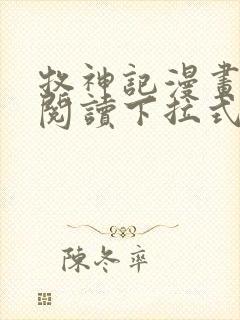 牧神記漫畫
閱讀下拉式
陳冬卒